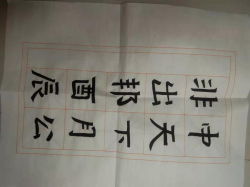 非中
出天
邦下
酉月
辰公